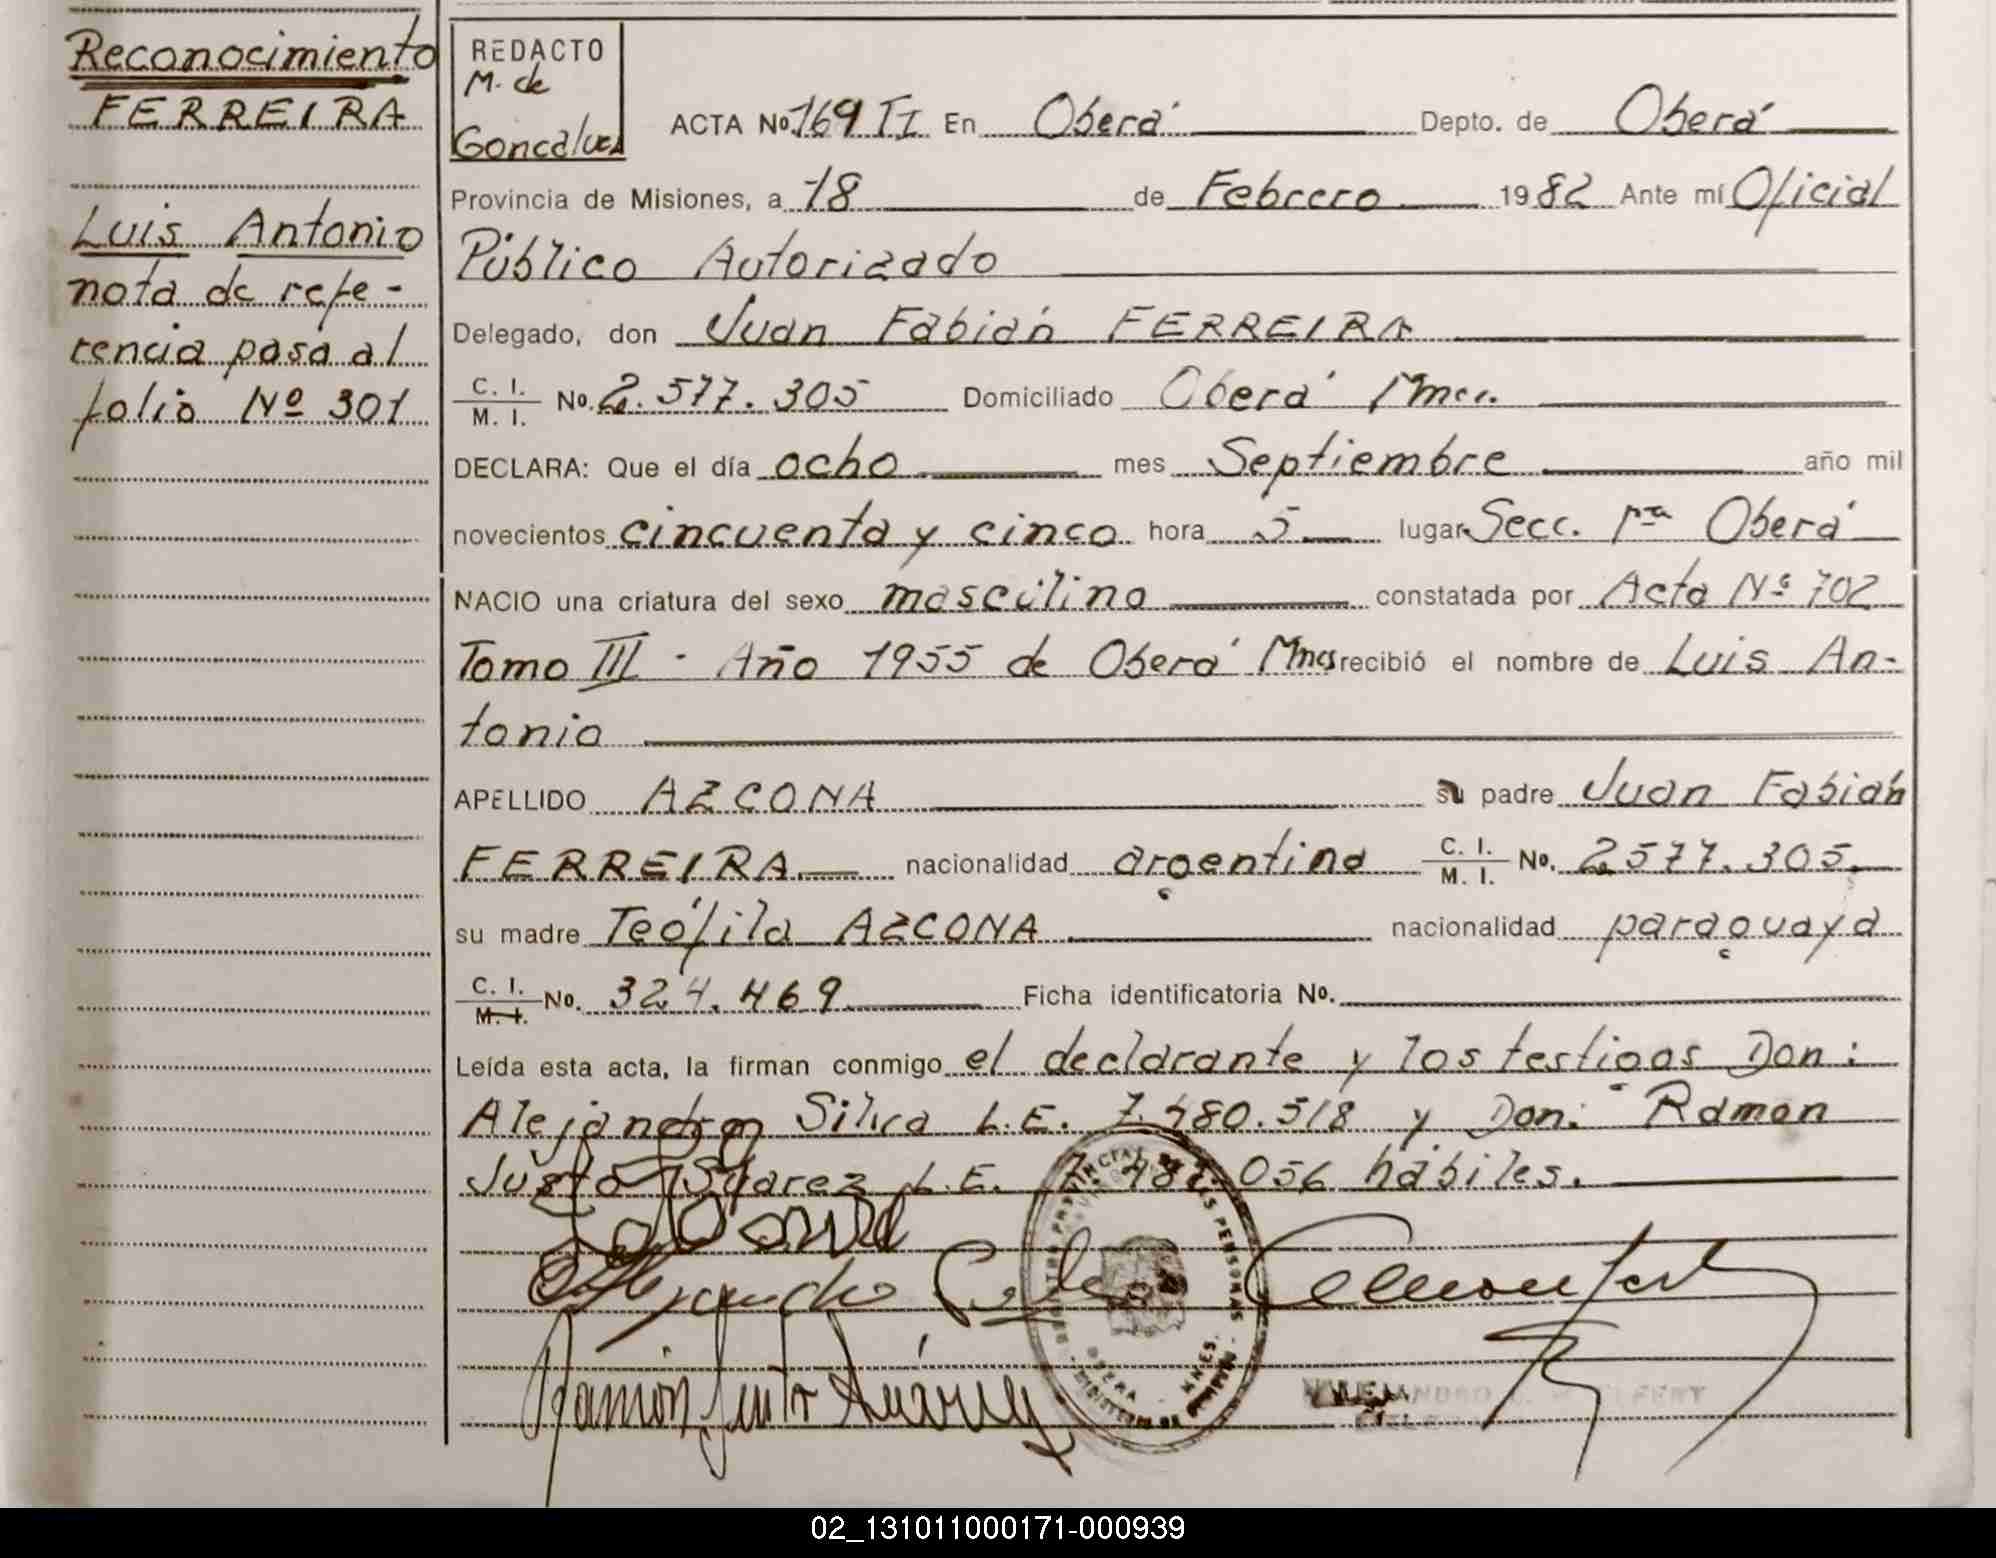 Reconocimiento
FERREIRA
Luis Antonio
nota de refe-
rencia pasa al
folio Nº 301
REDACTO
M. de
Goncalves
ACTA No. 169 TI En Oberá Depto. de Oberá
Provincia de Misiones, a 18 de Febrero 1982 Ante mí Oficial
Público Autorizado
Delegado, don Juan Fabián FERREIRA
C. I.
M. I. No. 2.577.305 Domiciliado Oberá Mnes.
DECLARA: Que el día ocho mes Septiembre año mil
novecientos cincuenta y cinco hora 5 lugar Secc. 1ra Oberá
NACIO una criatura del sexo masculino constatada por Acta Nº 702
Tomo III - Año 1955 de Oberá Mnes recibió el nombre de Luis An-
tonio
APELLIDO AZCONA su padre Juan Fabián
FERREIRA nacionalidad argentina C. I.
M. I. No. 2.577.305.
su madre Teófila AZCONA nacionalidad paraguaya
C. I.
M. I. No. 324.469 Ficha identificatoria No.
Leída esta acta, la firman conmigo el declarante y los testigos Don:
Alejandro Silva L.E. 7.480.518 y Don: Ramon
Justo Suarez L.E. 056 hábiles.
Ramón Justo Suárez
02_131011000171-000939